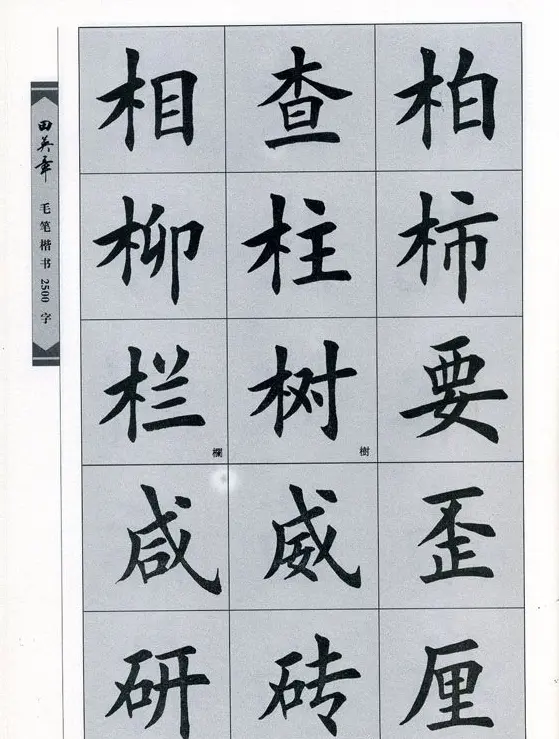 田英章
毛笔楷书2500字
相查柏
柳柱柿
栏欄树樹要
咸威歪
研砖厘